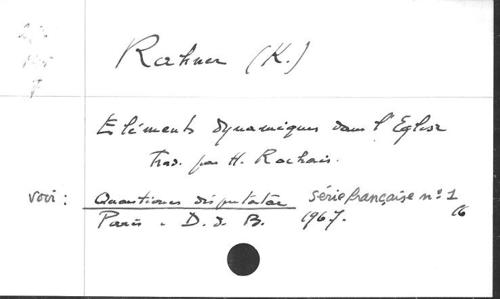 Rahner (K.)
Eléments dynamiques dans l'Eglise
Trad. par H. Rochais.
voir : Quaestiones disputatae série française n° 1
Paris . D. d. B. 1967. 16